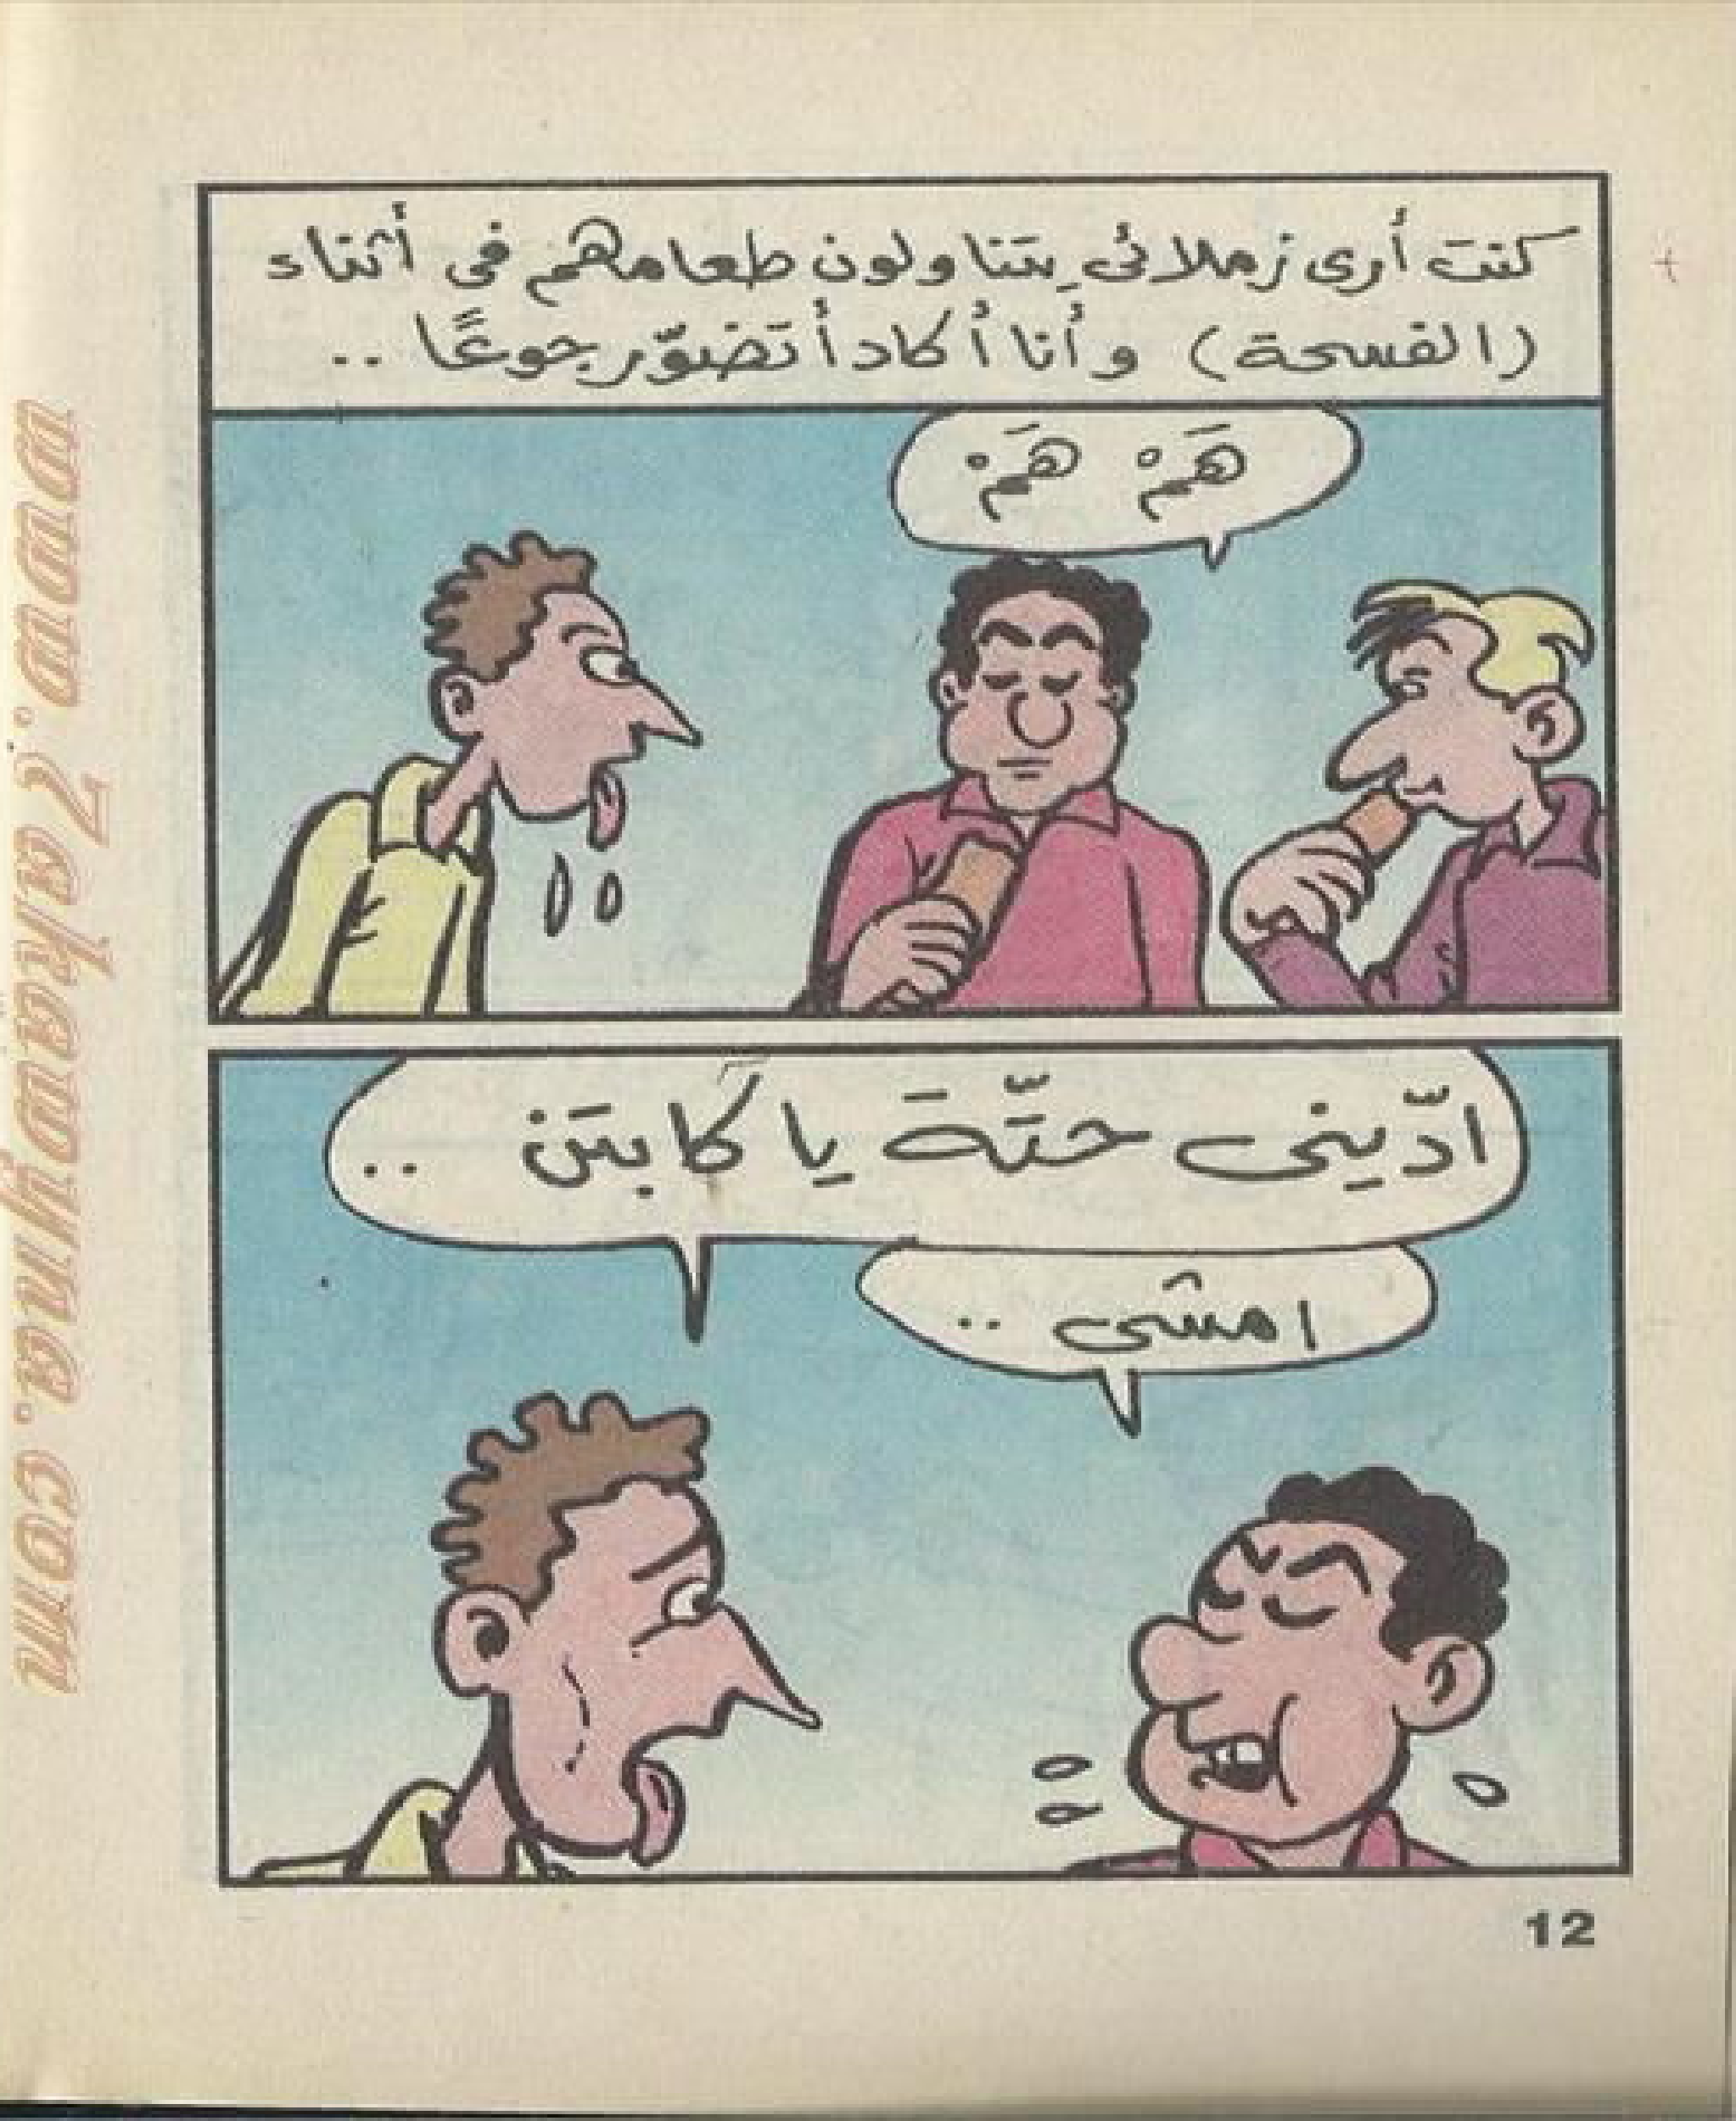 كنت أرى زملائى يتناولون طعامهم فى أثناء
(الفسحة) وأنا أكاد أتضوّر جوعًا ..
هَمْ هَمْ
ادّينى حتّة يا كابتن ..
امشى ..
12